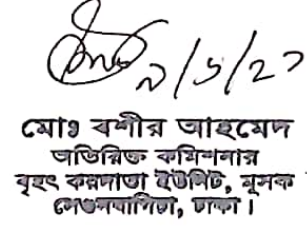 ৯/৬/২১
মোঃ বশীর আহমেদ
অতিরিক্ত কমিশনার
বৃহৎ করদাতা ইউনিট, মূসক
সেগুনবাগিচা, ঢাকা।